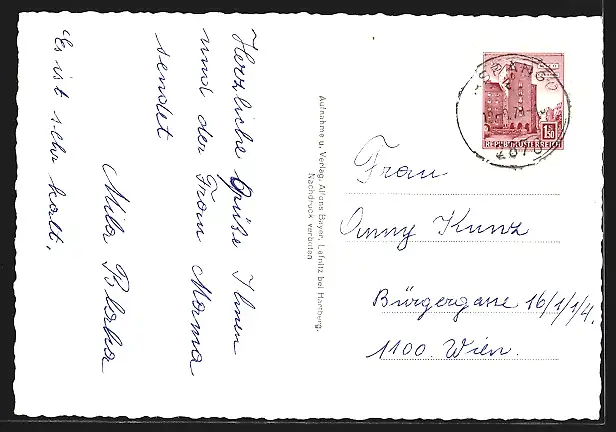 Herzliche Grüße Ihnen
und der Frau Mama
sendet
Mila Blaha
"Es ist sehr kalt.
Aufnahme u. Verlag: Alfons Bayer, Lafnitz bei Hartberg.
Nachdruck verboten
REPUBLIK ÖSTERREICH
1.50
Frau
Anny Kunz
Bürgergasse 16/1/1/4.
1100 Wien.